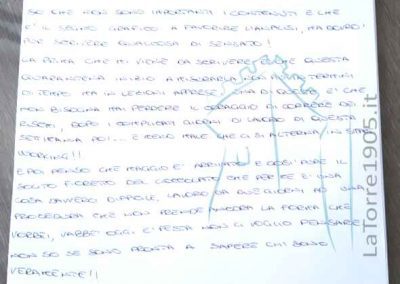 SO CHE NON SONO IMPORTANTI I CONTENUTI E CHE
E' IL SEGNO GRAFICO A FAVORIRE L'ANALISI, MA DOVRO'
PUR SCRIVERE QUALCOSA DI SENSATO!
LA PRIMA CHE MI VIENE DA SCRIVERE E' CHE QUESTA
QUARANTENA INIZIO A MISURARLA NON IN TERMINI
DI TEMPO MA IN LEZIONI APPRESE. UNA DI QUESTE E' CHE
NON BISOGNA MAI PERDERE IL CORAGGIO DI CORRERE DEI
RISCHI, DOPO I COMPLICATI GIORNI DI LAVORO DI QUESTA
SETTIMANA POI... E MENO MALE CHE CI SI ALTERNA IN SMART
WORKING!!
E POI PENSO CHE MAGGIO E' ARRIVATO E OGGI PARE IL
SOLITO FIORETTO DEL CIOCCOLATO CHE PER ME E' UNA
COSA DAVVERO DIFFICILE, LAVORO DA DUE GIORNI AD UNA
PROCEDURA CHE NON PRENDE ANCORA LA FORMA CHE
VORREI, VABBE' OGGI E' FESTA NON CI VOGLIO PENSARE!
NON SO SE SONO PRONTA A SAPERE CHI SONO
VERAMENTE!!
LaTorre1905.it